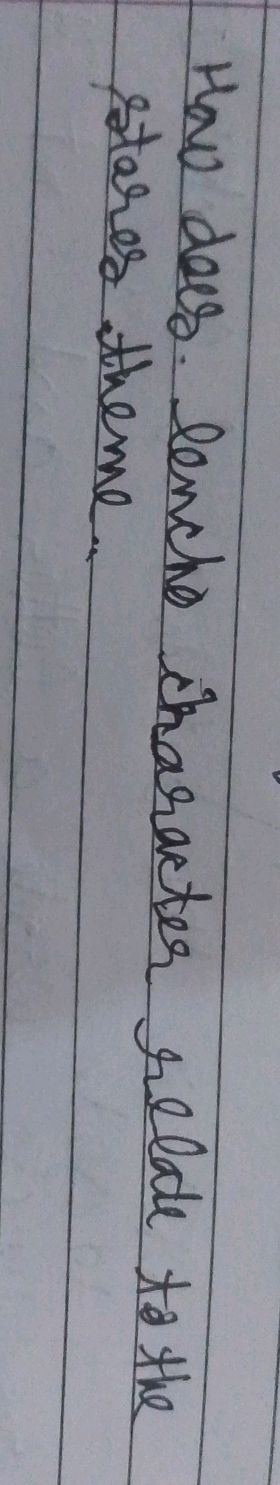 How does. lencho character relate to the
stares theme..